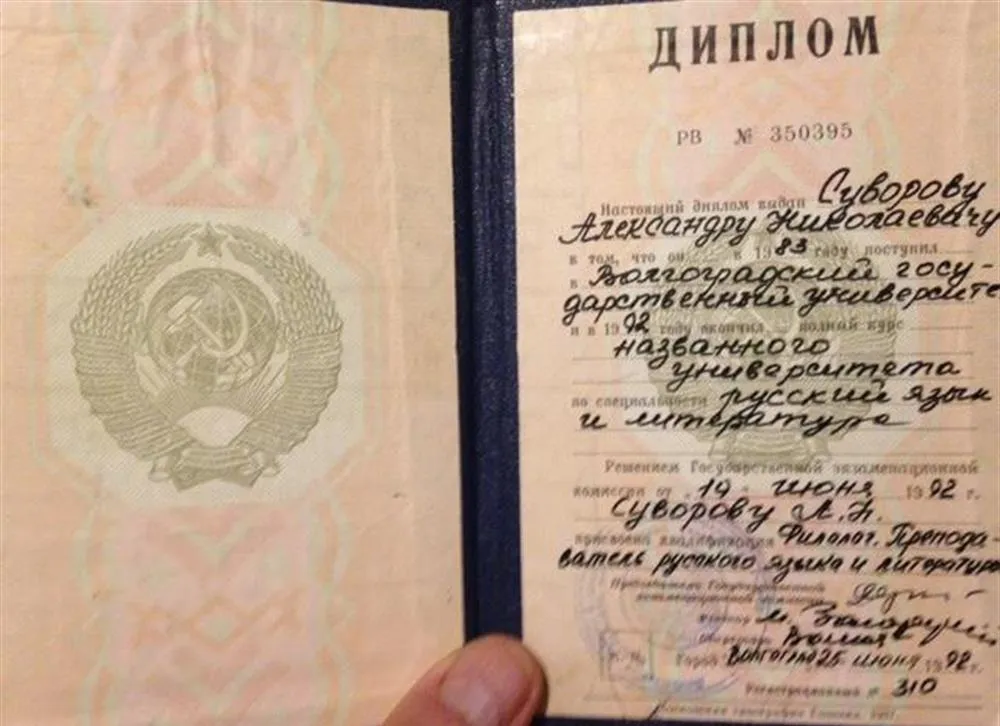 ДИПЛОМ
РВ № 350395
Настоящий диплом выдан Суворову
Александру Николаевичу
в том, что он в 1983 году поступил
в Волгоградский госу-
дарственный университе
и в 1992 году окончил полный курс
названного
университета
по специальности русский язык
и литература
Решением Государственной экзаменационной
комиссии от 19 июня 1992 г.
Суворову А.Н.
присвоена квалификация Филолог. Препода-
ватель русского языка и литературы
Председатель Государственной
экзаменационной комиссии
Ректор
Секретарь
М. П. Город Волгоград 25 июня 1992 г.
Регистрационный № 310
Московская типография Гознака.